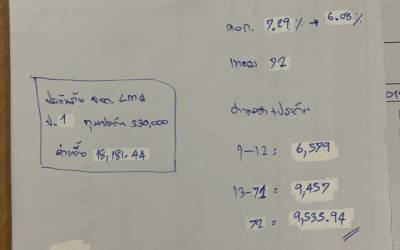 ดอก. 7.29% → 6.08%
เทอม 72
ประกันภัย
ป. 1 ทุนประกัน 330,000
ค่าเบี้ย 18,181.44
ค่างวด + ประกัน
1-12 = 6,579
13-71 = 9,457
72 = 9,535.94